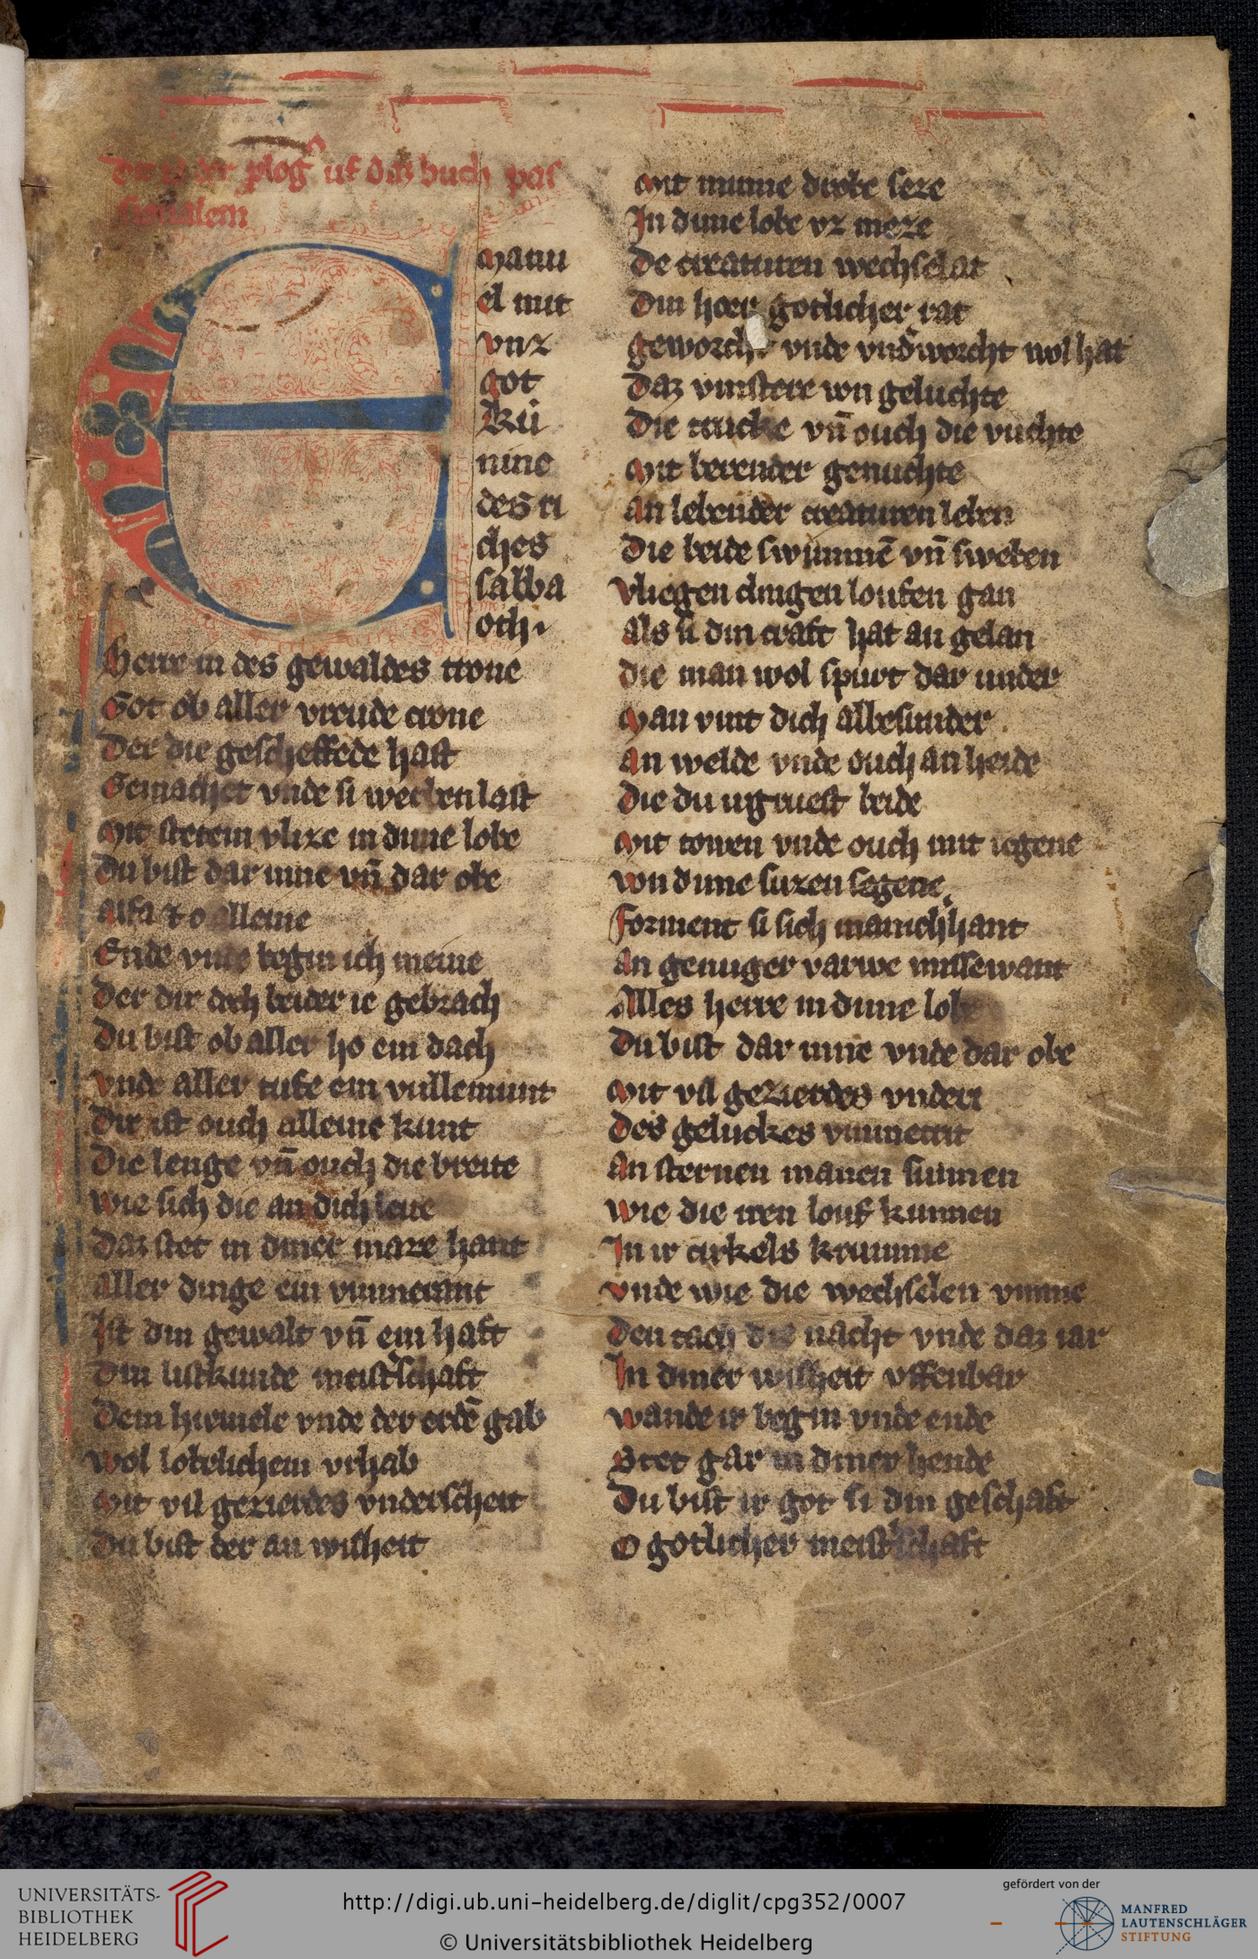 Dit is der plog uf daz buch pas
sionalem
Emanu
el mit
vnz
got
Kü
ninc
des ri
ches
sabba
oth.
Herre in des gewaldes trone
Got ob aller vreude crone
Der die gescheffede hast
Gemachet vnde si wecken last
Mit stetem vlize in dime lobe
Du bist dar inne vn̄ dar obe
alfa ⁊ o alleine
Ende vnde begin ich meine
Der dir doch beider ie gebrach
Du bist ob aller ho ein dach
vnde aller tufe ein vullemunt
Dir ist ouch alleine kunt
Die lenge vn̄ ouch die breite
wie sich die an dich leite
Daz stet in diner maze hant
aller dinge ein vmmerant
Ist din gewalt vn̄ ein haft
Din listkunde meist'schaft
Dem himele vnde der erdē gab
wol lobelichem vrhab
Mit vil gezierdes vnderscheit
Du bist der an wisheit
Mit minne drobe seze
In dime lobe vz meze
De creaturen wechselat
Din hoer gotlicher rat
geworcht vnde vnd'worcht wol hat
Daz vinstere von geluchte
Die trucke vn̄ ouch die vuchte
Mit berender genuchte
an lebender creaturen leben
Die beide swimmē vn̄ sweben
vliegen clingen loufen gan
als si din craft hat an gelan
die man wol spurt dar under
Man vint dich albesunder
an welde vnde ouch an heide
die du ugruest beide
Mit towen vnde ouch mit regene
von dime suzen segene
Forment si sich manichhant
an genuger varwe missewant
Alles herre in dime lobe
Du bist dar inne vnde dar obe
Mit vil gezierdes vnderr
Des geluckes vmmetrit
an sternen manen sunnen
wie die iren louf kunnen
In ir cirkels krumme
vnde wie die wechselen vmme
Den tach die nacht vnde daz iar
In diner wisheit offenbar
wande ir begin vnde ende
Stet gar in diner hende
Du bist ir got si din geschaft
O gotlicher meist'schaft
UNIVERSITÄTS-
BIBLIOTHEK
HEIDELBERG
http://digi.ub.uni-heidelberg.de/diglit/cpg352/0007
© Universitätsbibliothek Heidelberg
gefördert von der
MANFRED
LAUTENSCHLÄGER
STIFTUNG